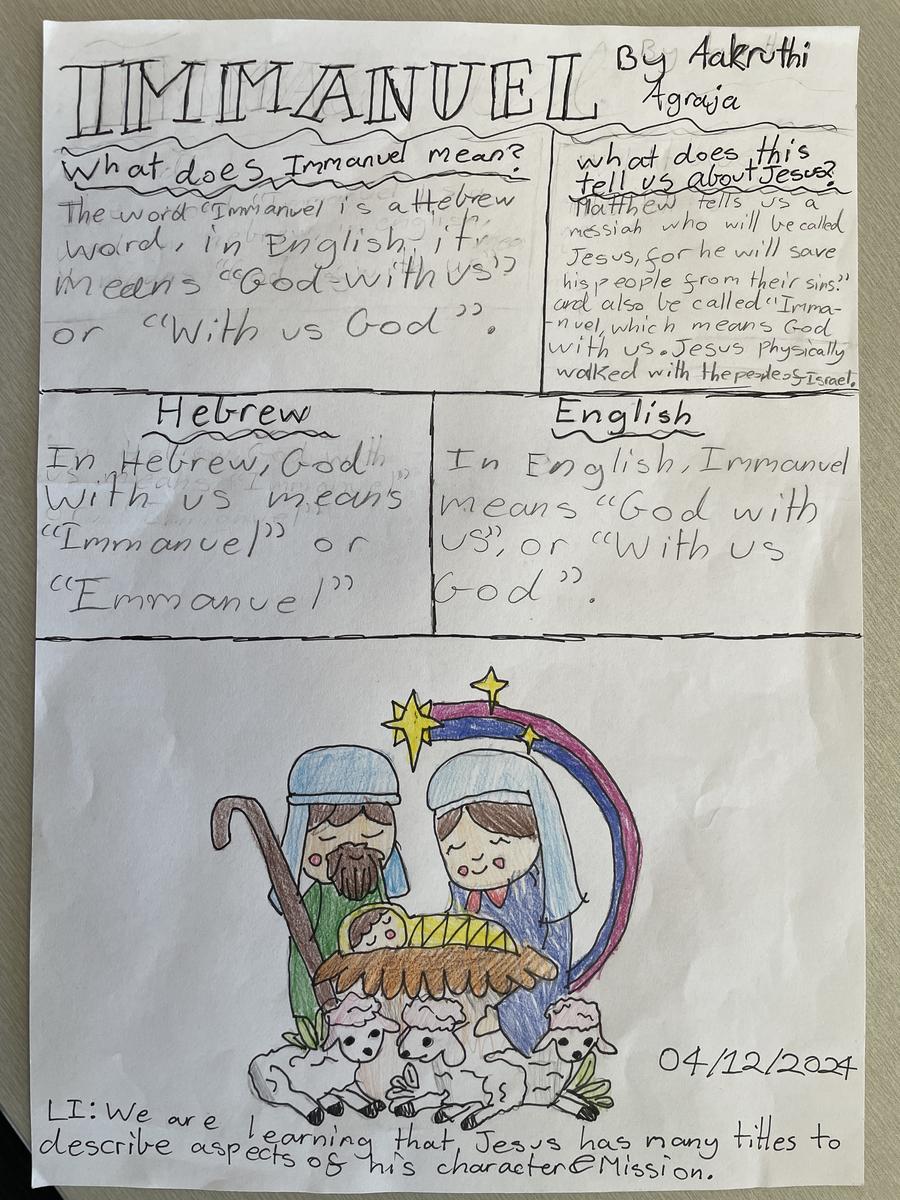 IMMANUEL
By Aakruthi
Agraja
What does Immanuel mean?
The word "Immanuel is a Hebrew
word, in English, it
means "God with us"
or "With us God".
what does this
tell us about Jesus?
Matthew tells us a
messiah who will be called
Jesus, for he will save
his people from their sins."
and also be called "Imma-
-nuel, which means God
with us. Jesus physically
walked with the people of Israel.
Hebrew
In Hebrew, God
with us means
"Immanuel" or
"Emmanuel"
English
In English, Immanuel
means "God with
us", or "With us
God".
04/12/2024
LI: We are learning that Jesus has many titles to
describe aspects of his character & Mission.